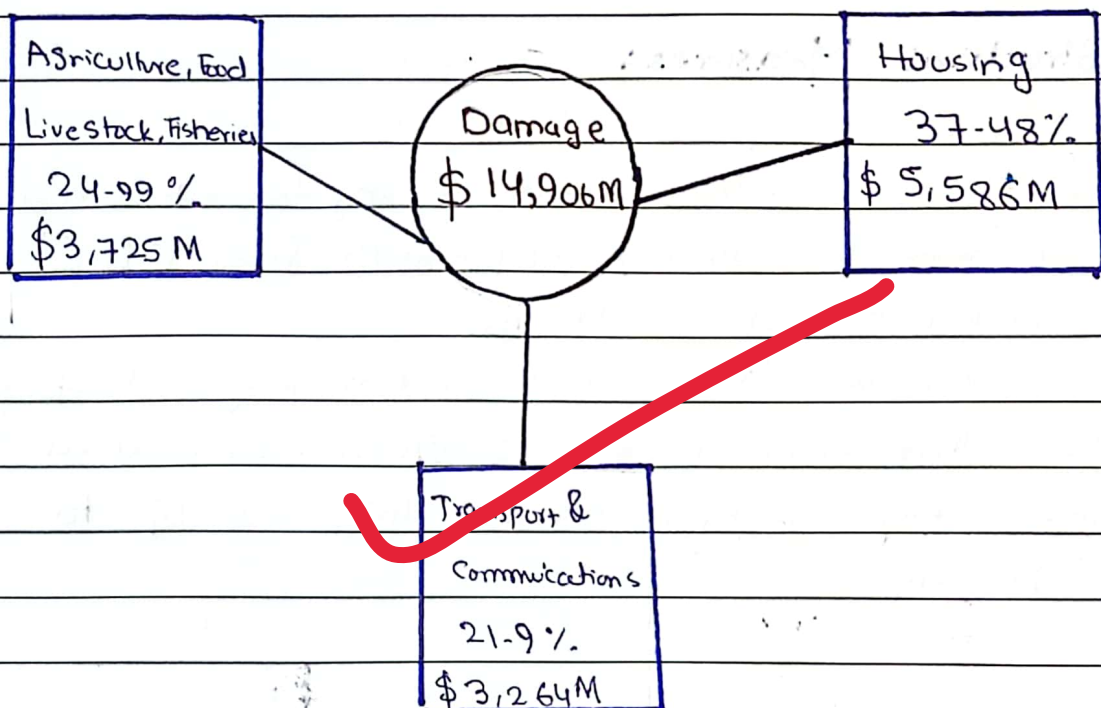 Agriculture, Food
Livestock, Fisheries
24-99 %
$3,725 M
Damage
$ 14,906M
Housing
37-48%
$ 5,586M
Transport &
Commuications
21-9 %
$3,264M